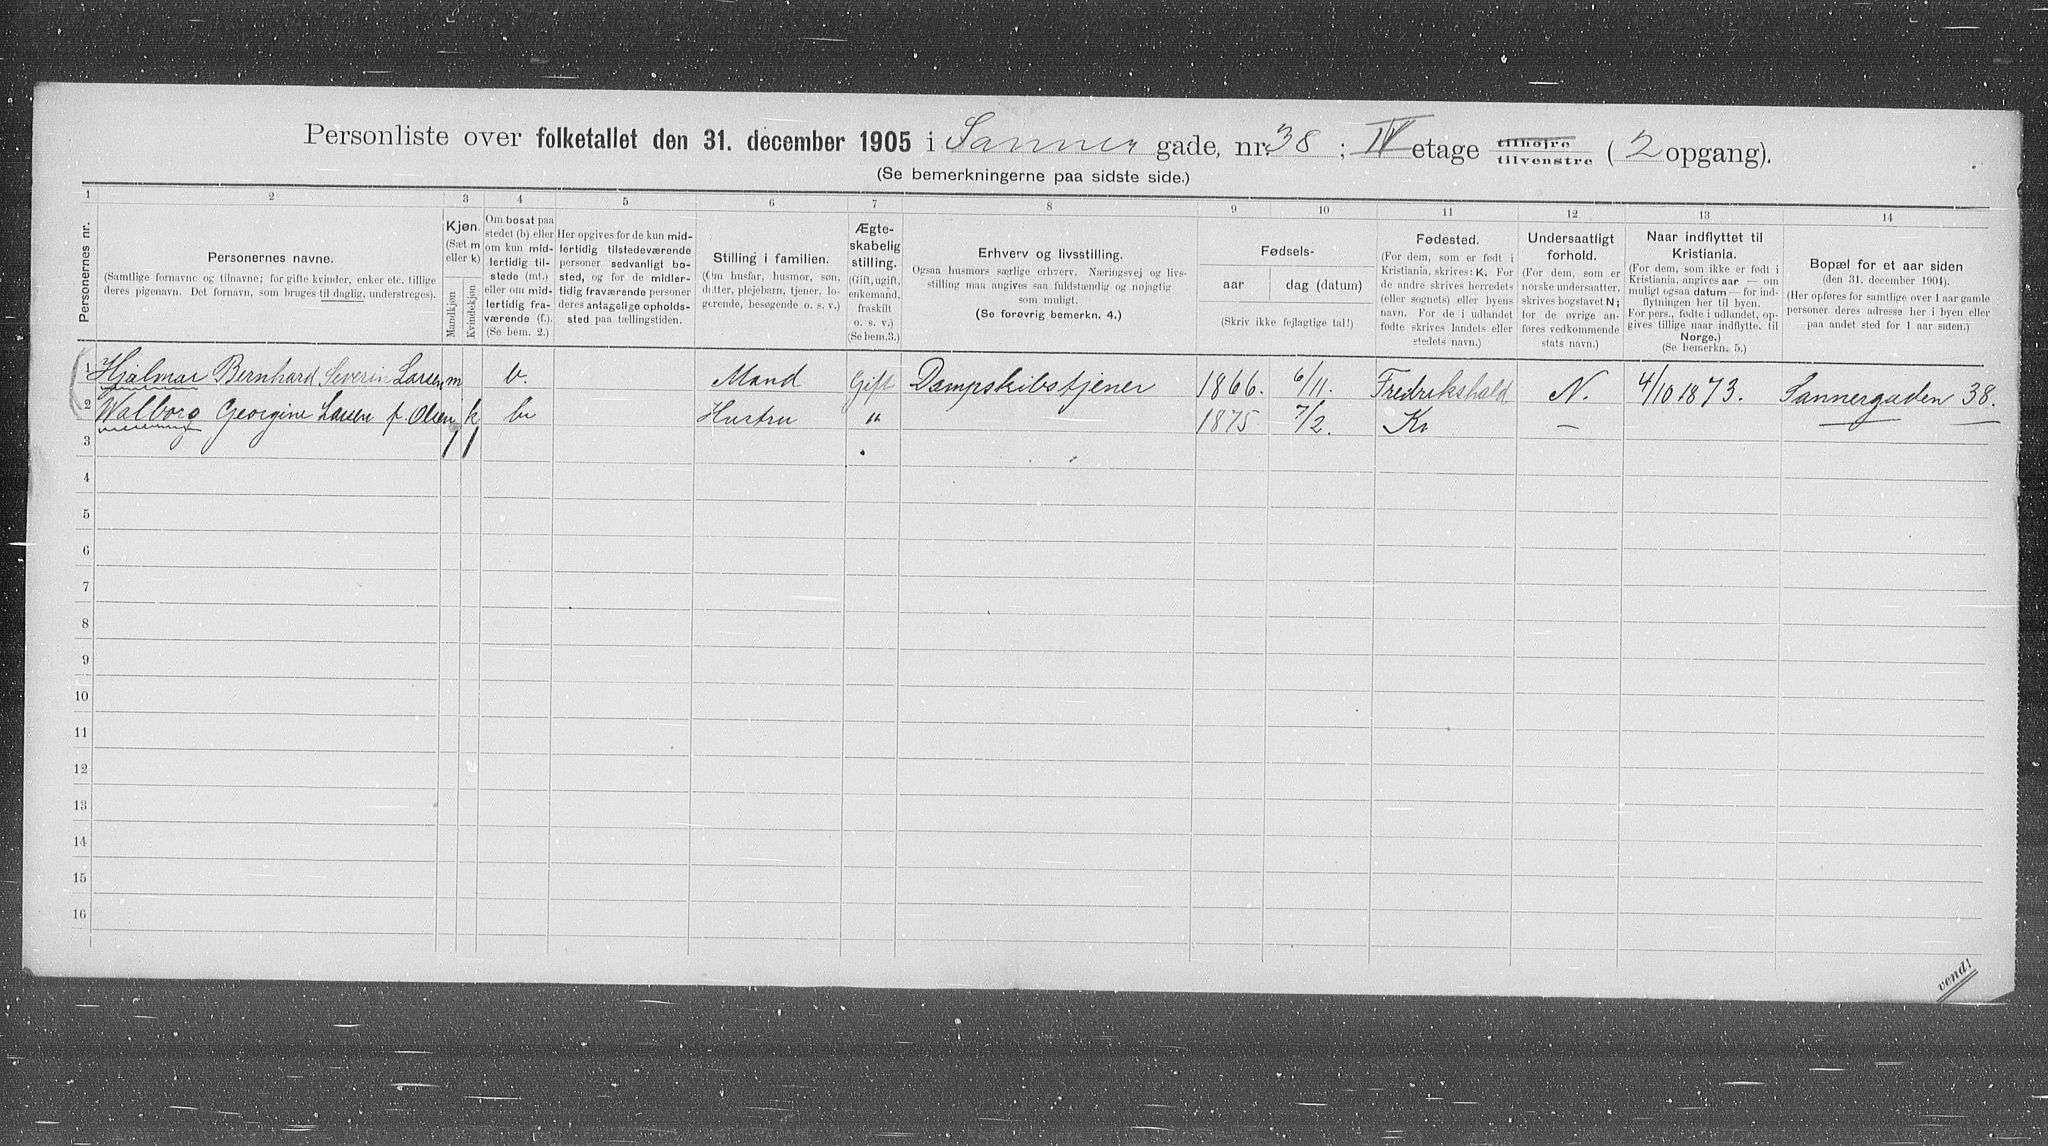 Personliste over folketallet den 31. december 1905 i Sanner gade, nr. 38 ; IV etage tilhøjre tilvenstre ( 2 opgang).
(Se bemerkningerne paa sidste side.)
1 2 3 4 5 6 7 8 9 10 11 12 13 14
Personernes nr.
Personernes navne.
(Samtlige fornavne og tilnavne; for gifte kvinder, enker etc. tillige
deres pigenavn. Det fornavn, som bruges til daglig, understreges).
Kjøn.
(Sæt m
eller k)
Mandkjøn
Kvindekjøn
Om bosat paa
stedet (b) eller
om kun mid-
lertidig til-
stede (mt.)
eller om mid-
lertidig fra-
værende (f.).
(Se bem. 2.)
Her opgives for de kun mid-
lertidig tilstedeværende
personer sedvanligt bo-
sted, og for de midler-
tidig fraværende personer
deres antagelige opholds-
sted paa tællingstiden.
Stilling i familien.
(Om husfar, husmor, søn,
datter, plejebarn, tjener, lo-
gerende, besøgende o. s. v.)
Ægte-
skabelig
stilling.
(Gift, ugift,
enkemand,
fraskilt
o. s. v.)
(Se bem.3.)
Erhverv og livsstilling.
Ogsaa husmors særlige erhverv. Næringsvej og livs-
stilling maa angives saa fuldstændig og nøjagtig
som muligt.
(Se forøvrig bemerkn. 4.)
Fødsels-
aar
dag (datum)
(Skriv ikke fejlagtige tal!)
Fødested.
(For dem, som er født i
Kristiania, skrives: K. For
de andre skrives herredets
(eller sognets) eller byens
navn. For de i udlandet
fødte skrives landets eller
stedets navn.)
Undersaatligt
forhold.
(For dem, som er
norske undersaatter,
skrives bogstavet N;
for de øvrige an-
føres vedkommende
stats navn.)
Naar indflyttet til
Kristiania.
(For dem, som ikke er født i
Kristiania, angives aar — om
muligt ogsaa datum — for ind-
flytningen her til byen.
For pers., fødte i udlandet, op-
gives tillige naar indflytte. til
Norge.)
(Se bemerkn. 5.)
Bopæl for et aar siden
(den 31. december 1904).
(Her opføres for samtlige over 1 aar gamle
personer deres adresse her i byen eller
paa andet sted for 1 aar siden.)
1 Hjalmar Bernhard Severin Larsen m b. Mand Gift Dampskibstjener 1866. 6/11. Fredrikshald N. 4/10 1873. Sannergaden 38.
2 Walborg Georgine Larsen f. Olsen k b Hustru " 1875 7/2. K. —
3
4
5
6
7
8
9
10
11
12
13
14
15
16
vend!